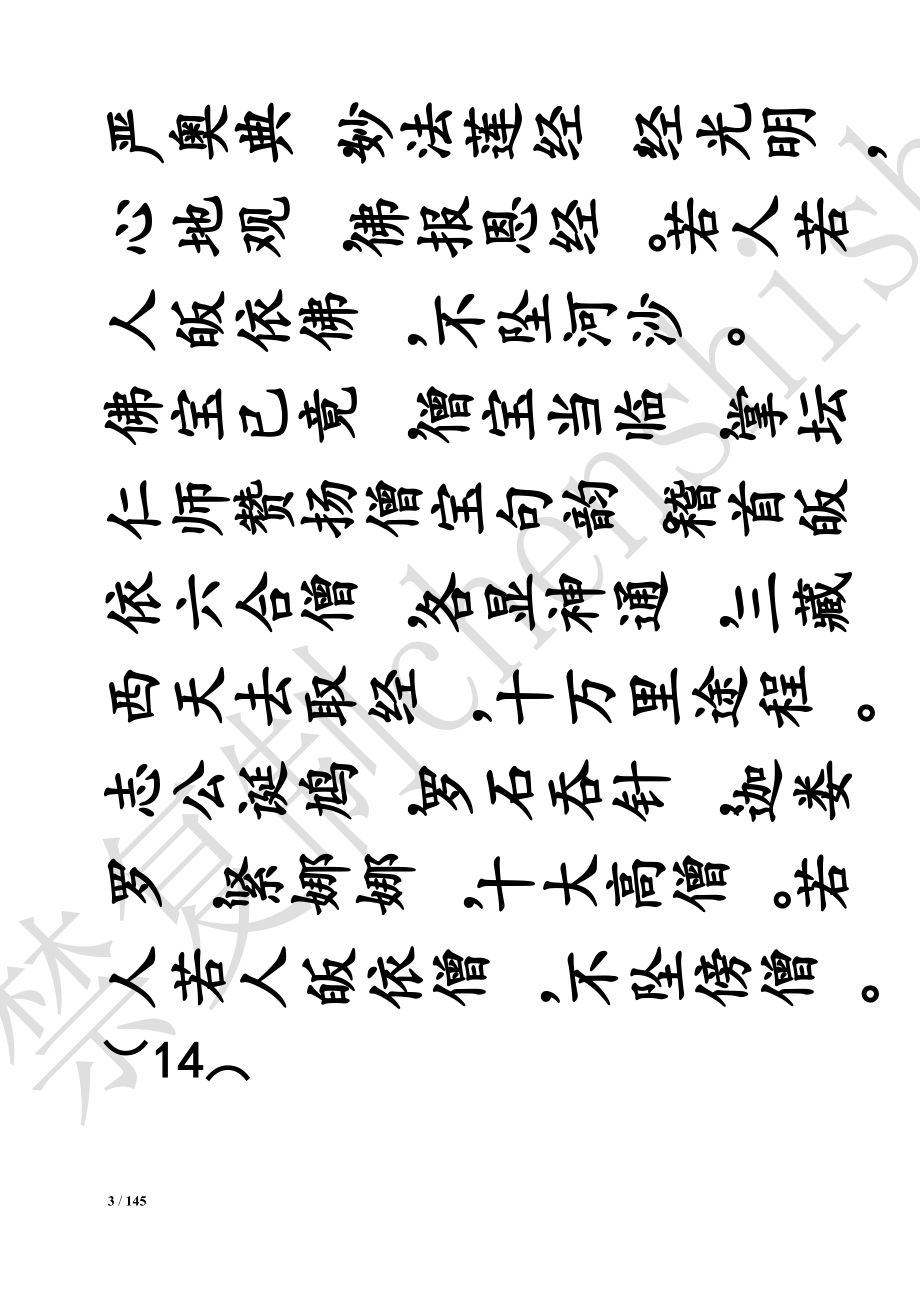 严奥典，妙法莲经，经光明，
心地观，佛报恩经。若人若
人皈依佛，不坠河沙。
佛宝已竟，僧宝当临，掌坛
仁师赞扬僧宝句韵。稽首皈
依六合僧，各显神通，三藏
西天去取经，十万里途程。
志公诞鸠，罗石吞针，迦娄
罗，紧娜娜，十大高僧。若
人若人皈依僧，不坠傍僧。
（14）
3 / 145
禁复制chenshish